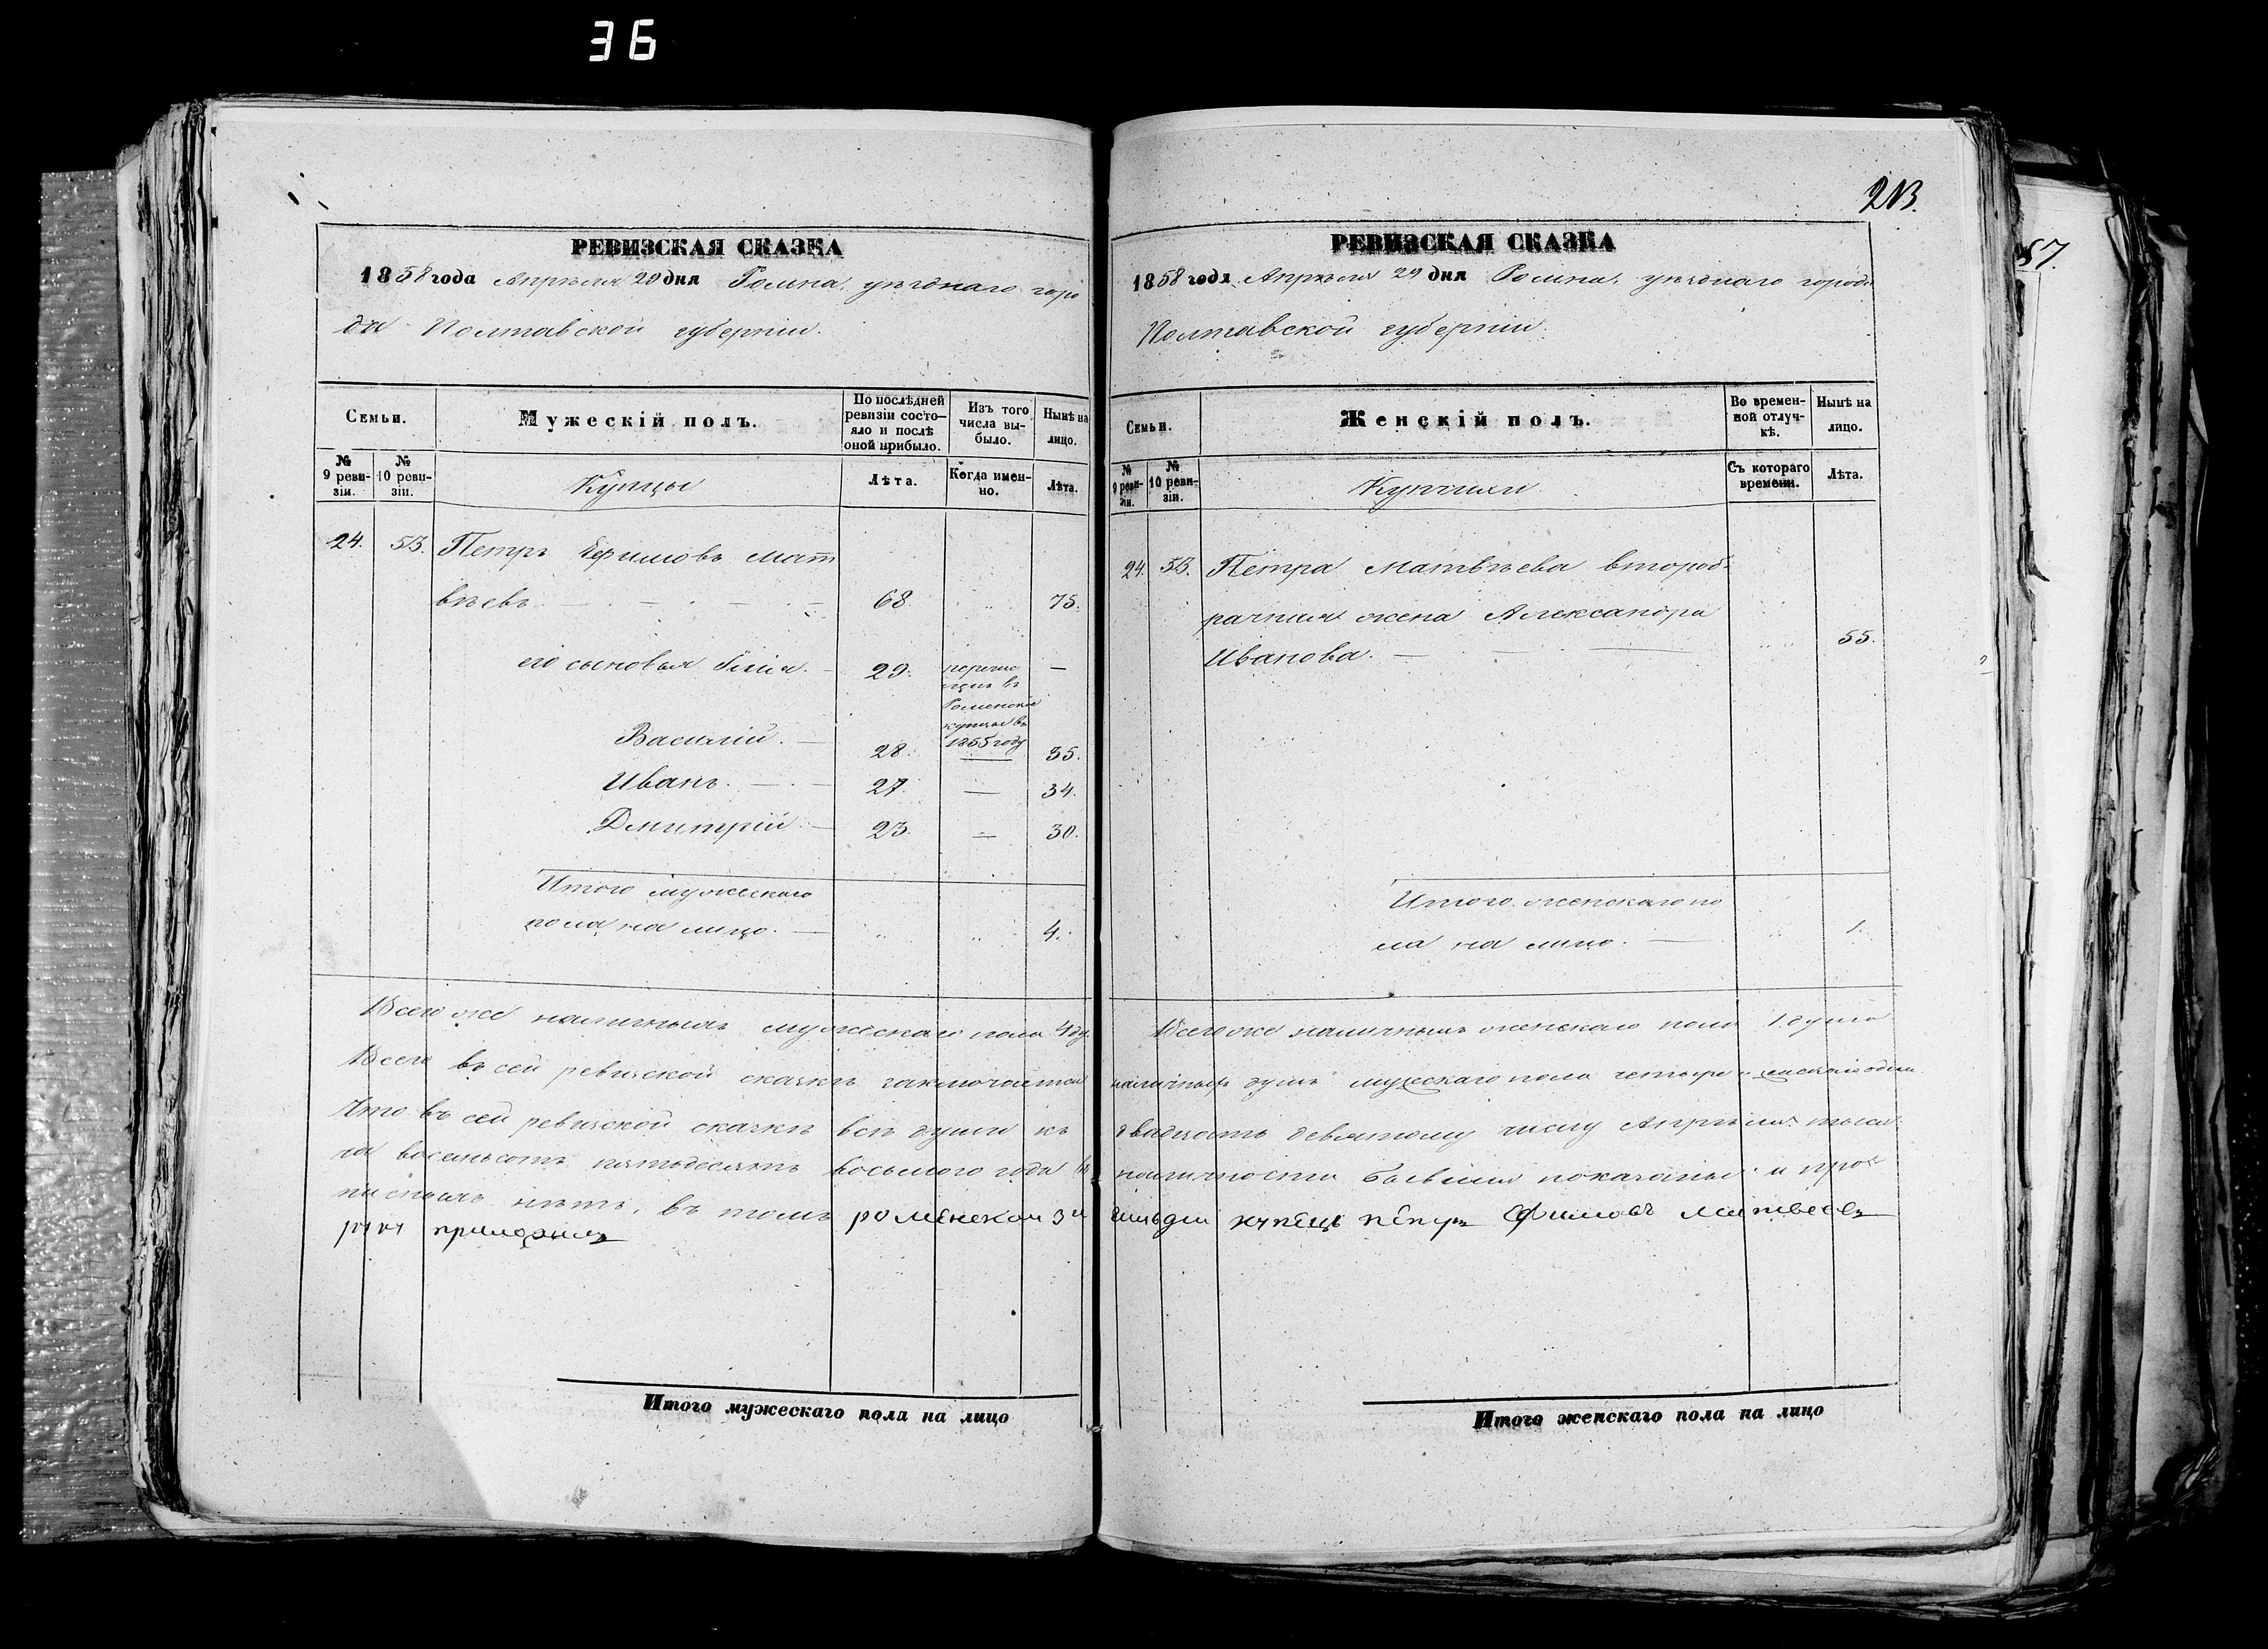 36
213.
87.
РЕВИЗСКАЯ СКАЗКА
1858 года Апрѣля 29 дня Ромна, уѣзднаго горо
да Полтавской губерніи.
Семьи.
Мужескій полъ.
По послѣдней ревизіи состо-
яло и послѣ оной прибыло.
Изъ того числа вы-
было.
Нынѣ на лицо.
№ 9 реви-
зіи.
№ 10 реви-
зіи.
Купцы
Лѣта.
Когда имен-
но.
Лѣта.
24. 53. Петръ Ефимовъ Мат
вѣевъ. 68. 75.
его сыновья Илія. 29. перечис
въ
Роменскіе
купцы въ
1855 году
Василій. 28. 35.
Иванъ. 27. 34.
Дмитрій. 23. 30.
Итого мужескаго
пола на лицо. 4.
РЕВИЗСКАЯ СКАЗКА
1858 года Апрѣля 29 дня Ромна, уѣзднаго города
Полтавской губерніи.
Семьи.
Женскій полъ.
Во времен-
ной отлуч-
кѣ.
Нынѣ на лицо.
№ 9 реви-
зіи.
№ 10 реви-
зіи.
Съ котораго времени.
Лѣта.
24. 53. Петра Матвѣева второб-
рачная жена Александра
Иванова. 55.
Итого женскаго по
ла на лицо. 1.
Всего же наличныхъ мужескаго пола 4 ду. Всего же наличныхъ женскаго пола 1 душа
Всего въ сей ревизской сказкѣ заключается наличныхъ душъ мужескаго пола четыре и женскаго одна.
Что въ сей ревизской сказкѣ всѣ души къ двадцать девятому числу Апрѣля тыся
ча восемьсотъ пятьдесятъ восьмого года въ наличности бывшія показаны и про
писныхъ нѣтъ, въ томъ роменской 3й гильдии купецъ петръ Ефимовъ Матвеевъ
руку приложилъ
Итого мужескаго пола на лицо
Итого женскаго пола на лицо